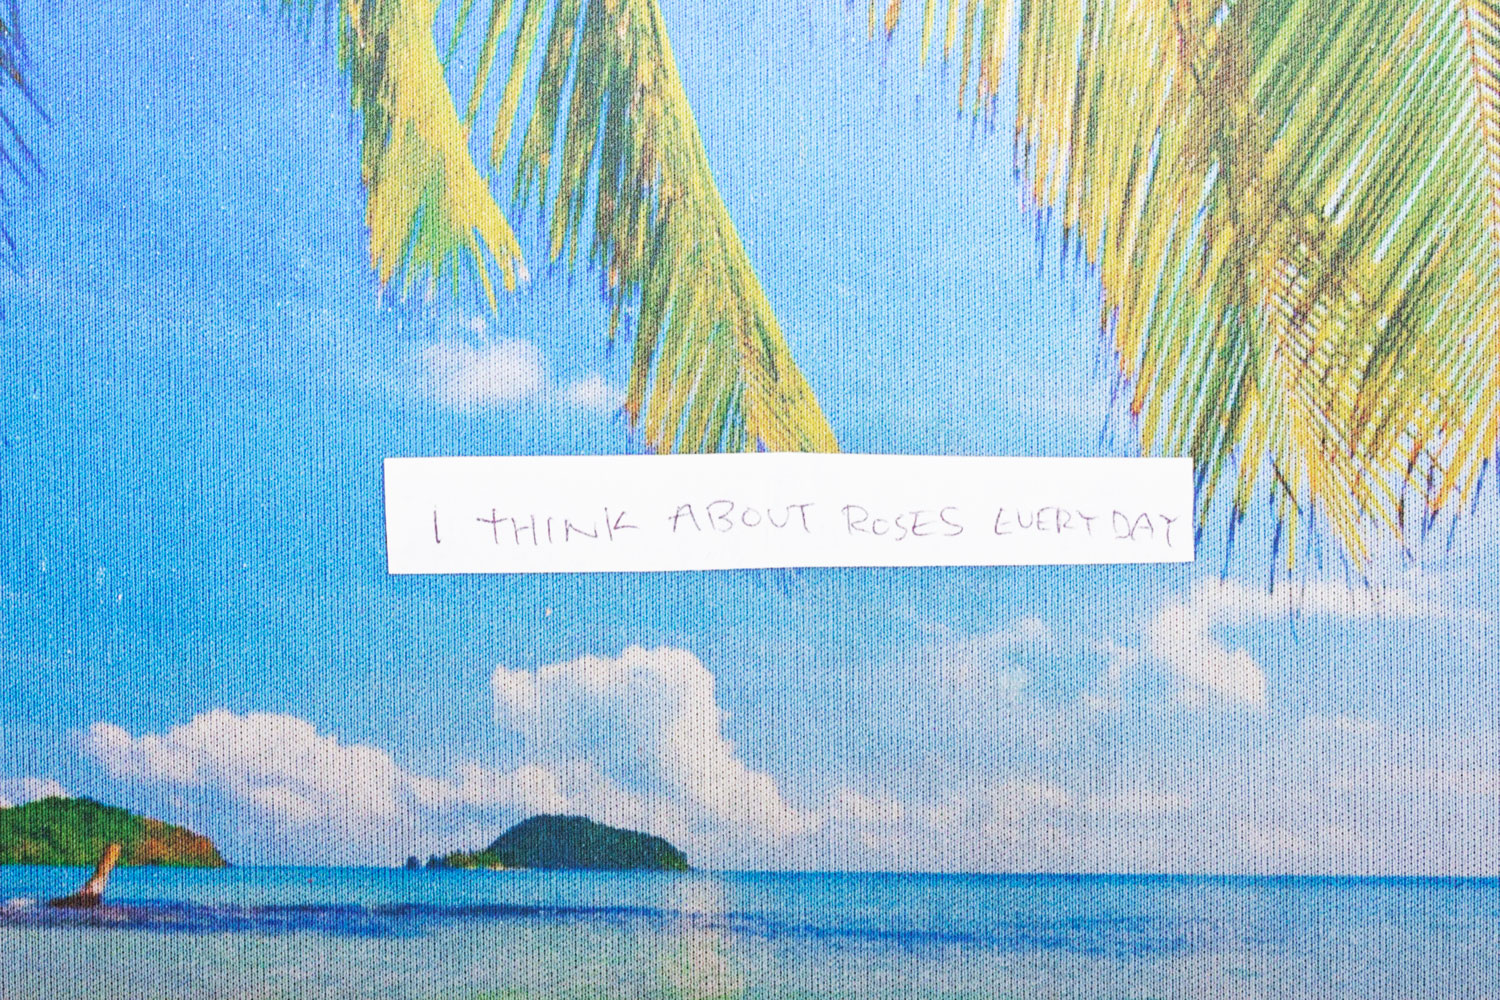 I THINK ABOUT ROSES EVERYDAY